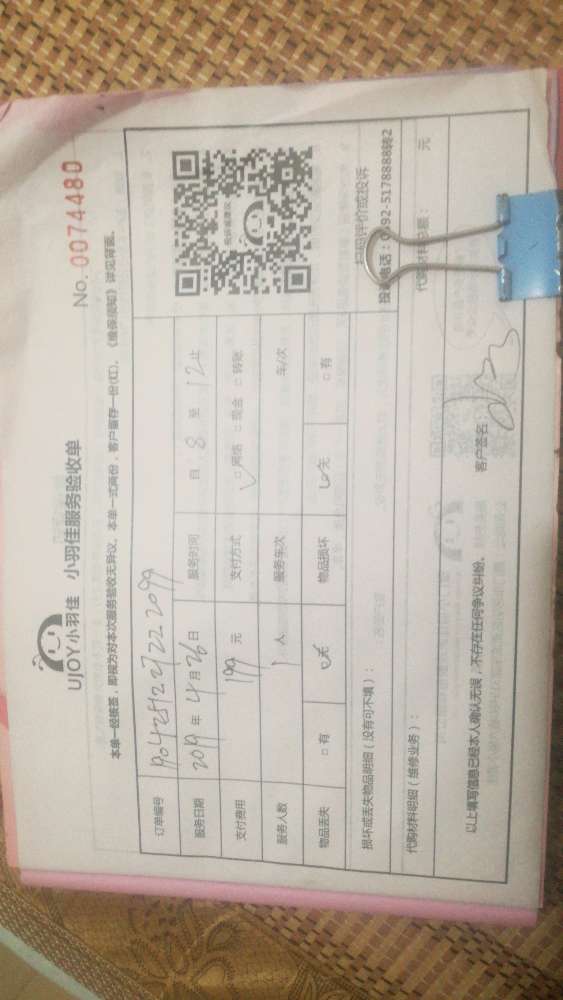 UJOY小羽佳 小羽佳服务验收单
No. 0074480
本单一经接签，即视为对本次服务验收无异议，本单一式两份，客户留存一份(红)，《维保须知》详见背面。
订单编号 1904251227222099
服务日期 2019年4月26日 服务时间 自 8 至 12止
支付费用 199 元 支付方式 ☑网络 □现金 □转账
服务人数 1 人 服务车次 车/次
物品丢失 □有 ☑无 物品损坏 ☑无 □有
扫码评价或投诉
损坏或丢失物品明细（没有可不填）： 电话：92-5178888转2
代购材料明细（维修业务）： 代购材料 元
以上填写信息已经本人确认无误，不存在任何争议纠纷。 客户签名：